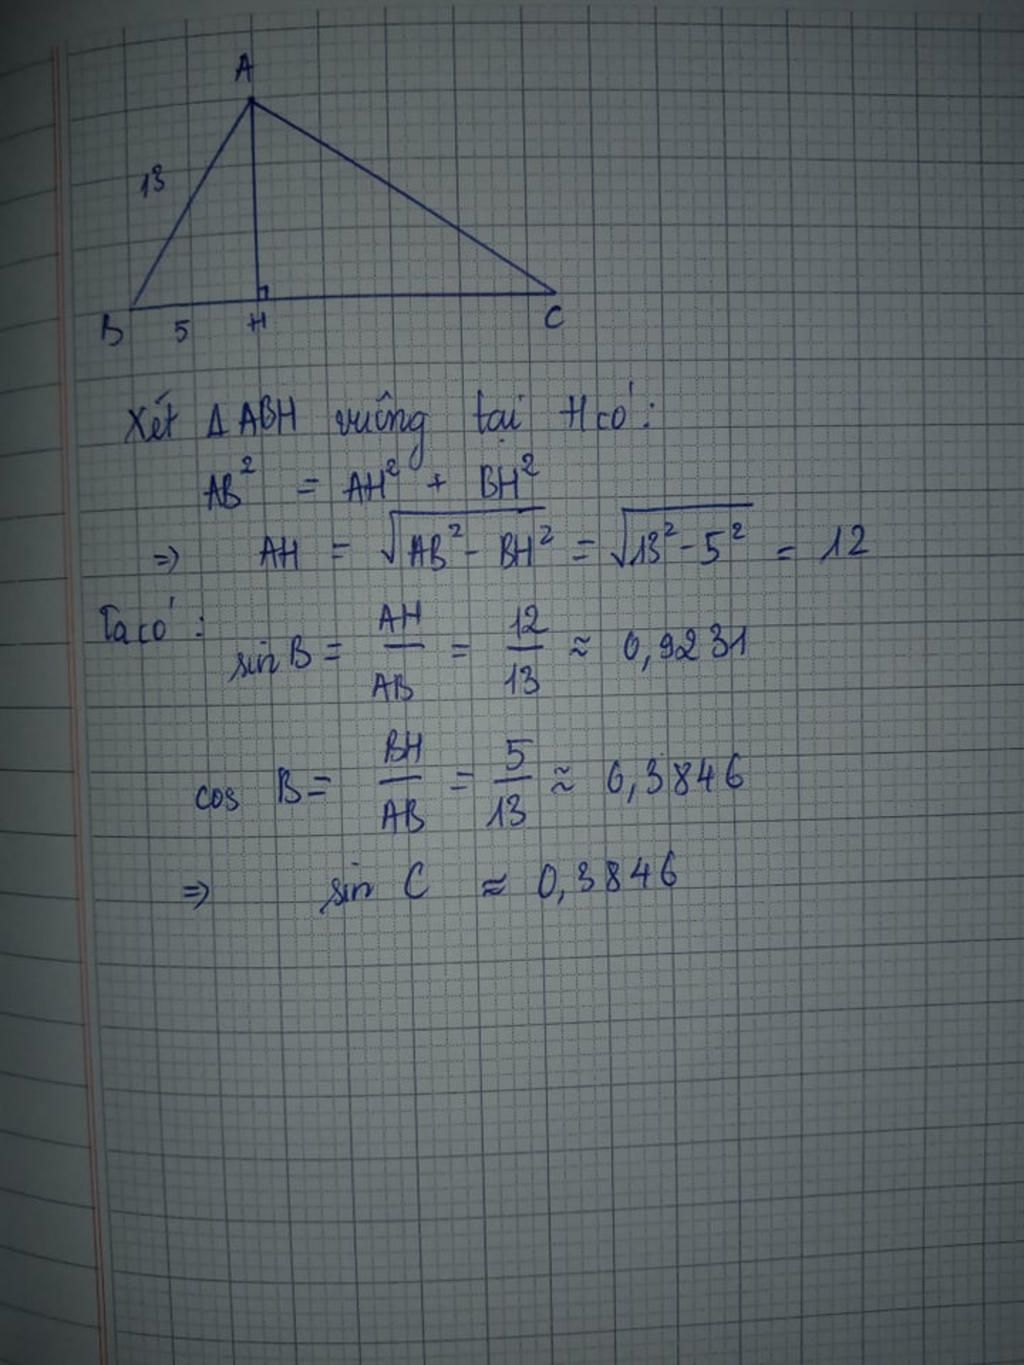 A
13
B 5 H C
Xét Δ ABH vuông tại H có:
AB² = AH² + BH²
=> AH = √(AB² - BH²) = √(13² - 5²) = 12
Ta có:
sin B = AH/AB = 12/13 ≈ 0,9231
cos B = BH/AB = 5/13 ≈ 0,3846
=> sin C ≈ 0,3846